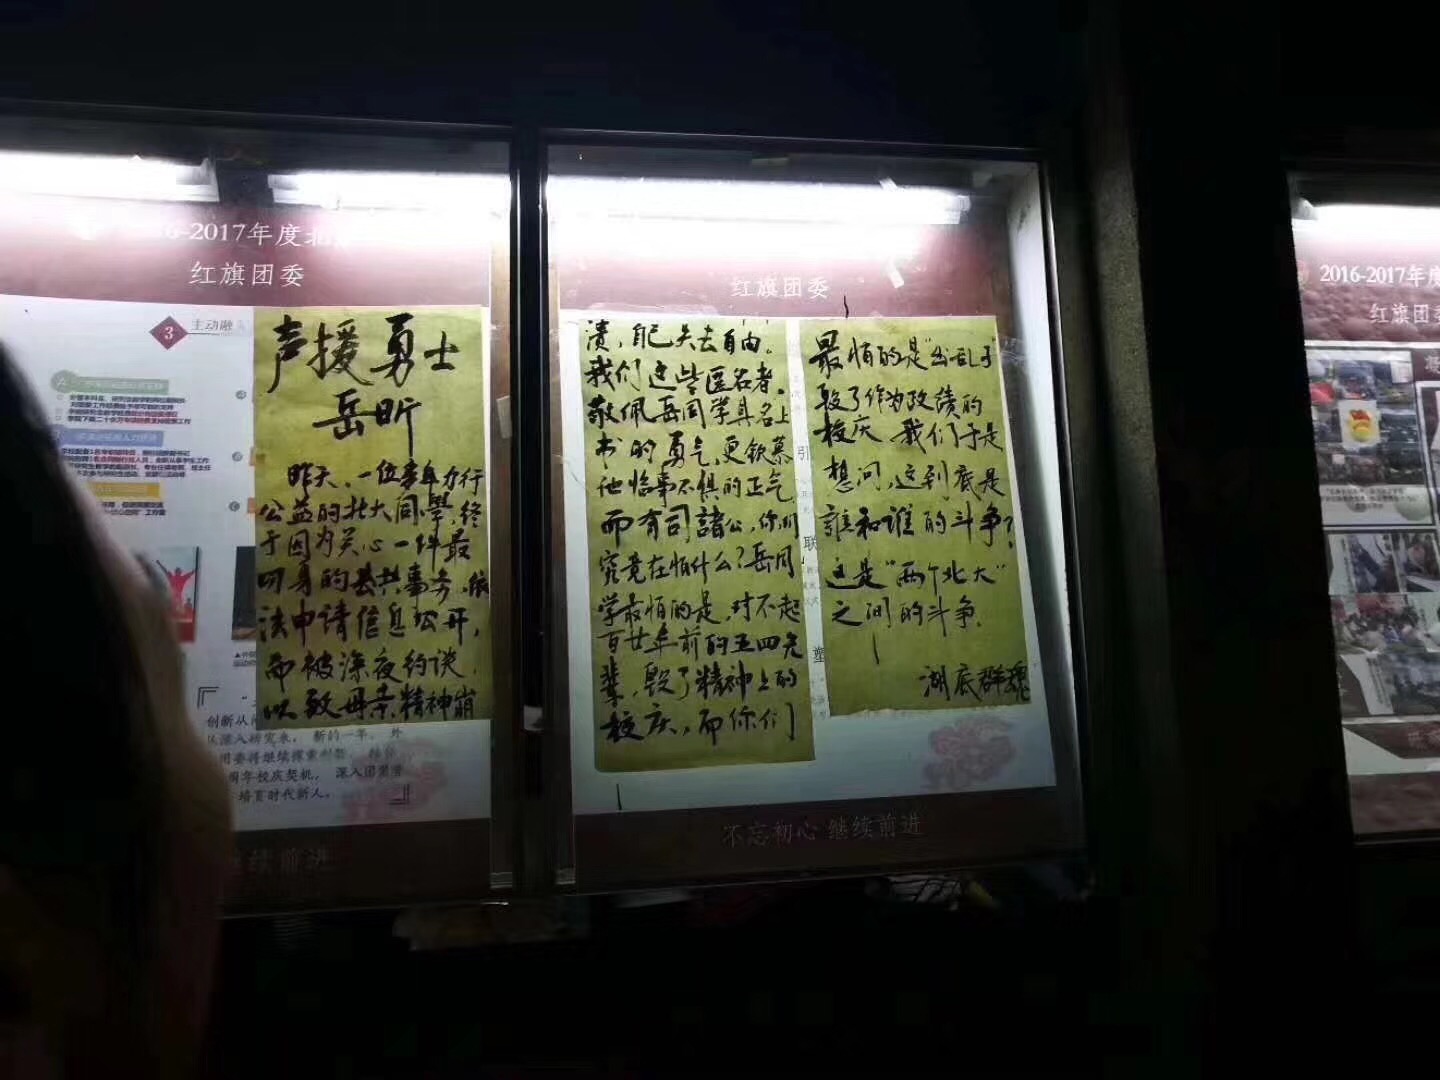 -2017年度北
红旗团委
3
主动融
声援勇士
岳昕
昨天,一位亲身力行
公益的北大同學,终
于因为关心一件最
切身的公共事务,依
法申请信息公开,
而被深夜约谈
以致母亲精神崩
培育时代新人。
继续前进
红旗团委
溃,自己失去自由。
我们这些匿名者,
敬佩岳同学具名上
书的勇气,更钦慕
他临事不惧的正气。
而有司諸公,你们
究竟在怕什么?岳同
学最怕的是,对不起
百廿年前的五四先
辈,毁了精神上的
校庆,而你们
引
联
塑
最怕的是“出乱子”
毁了作为政绩的
校庆 我们于是
想问,这到底是
誰和谁的斗争?
这是“两个北大”
之间的斗争.
湖底群魂
不忘初心 继续前进
2016-2017年度
红旗团委